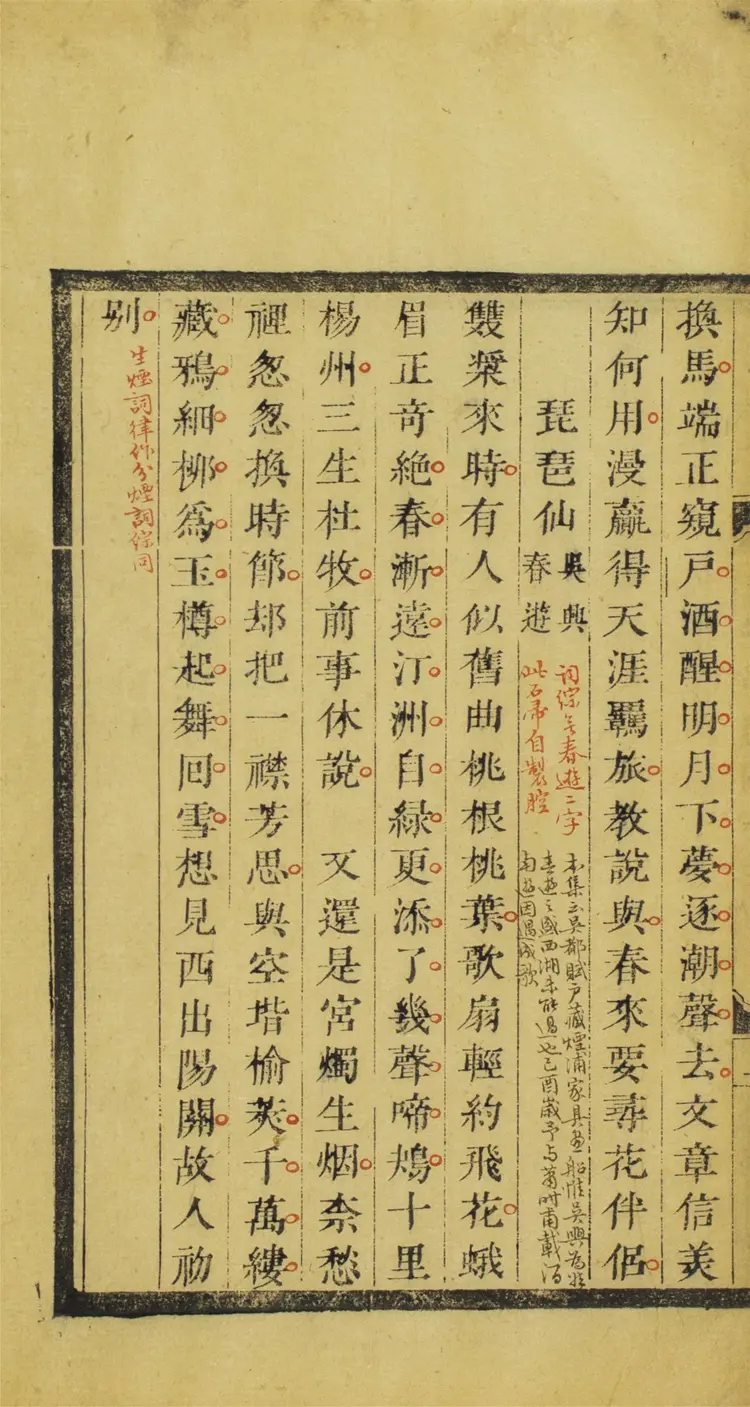 換馬端正窺戶酒醒明月下夢逐潮聲去文章信美
知何用漫羸得天涯羈旅教說與春來要尋花伴侶
琵琶仙
吳興
春遊
詞綜無春遊二字
此石帚自製腔
本集云吳都賦戶藏煙浦家具畫船惟吳興為然
春遊之盛西湖未能過也己酉歲予与蕭时甫載酒
南遊因遇成歌
雙槳來時有人似舊曲桃根桃葉歌扇輕約飛花蛾
眉正奇絶春漸遠汀洲自緑更添了幾聲啼鴂十里
楊州三生杜牧前事休說 又還是宮燭生烟柰愁
裡怱怱換時節却把一襟芳思與空堦榆莢千萬縷
藏鴉細柳為玉樽起舞回雪想見西出陽關故人初
别
生煙詞律作分煙詞綜同